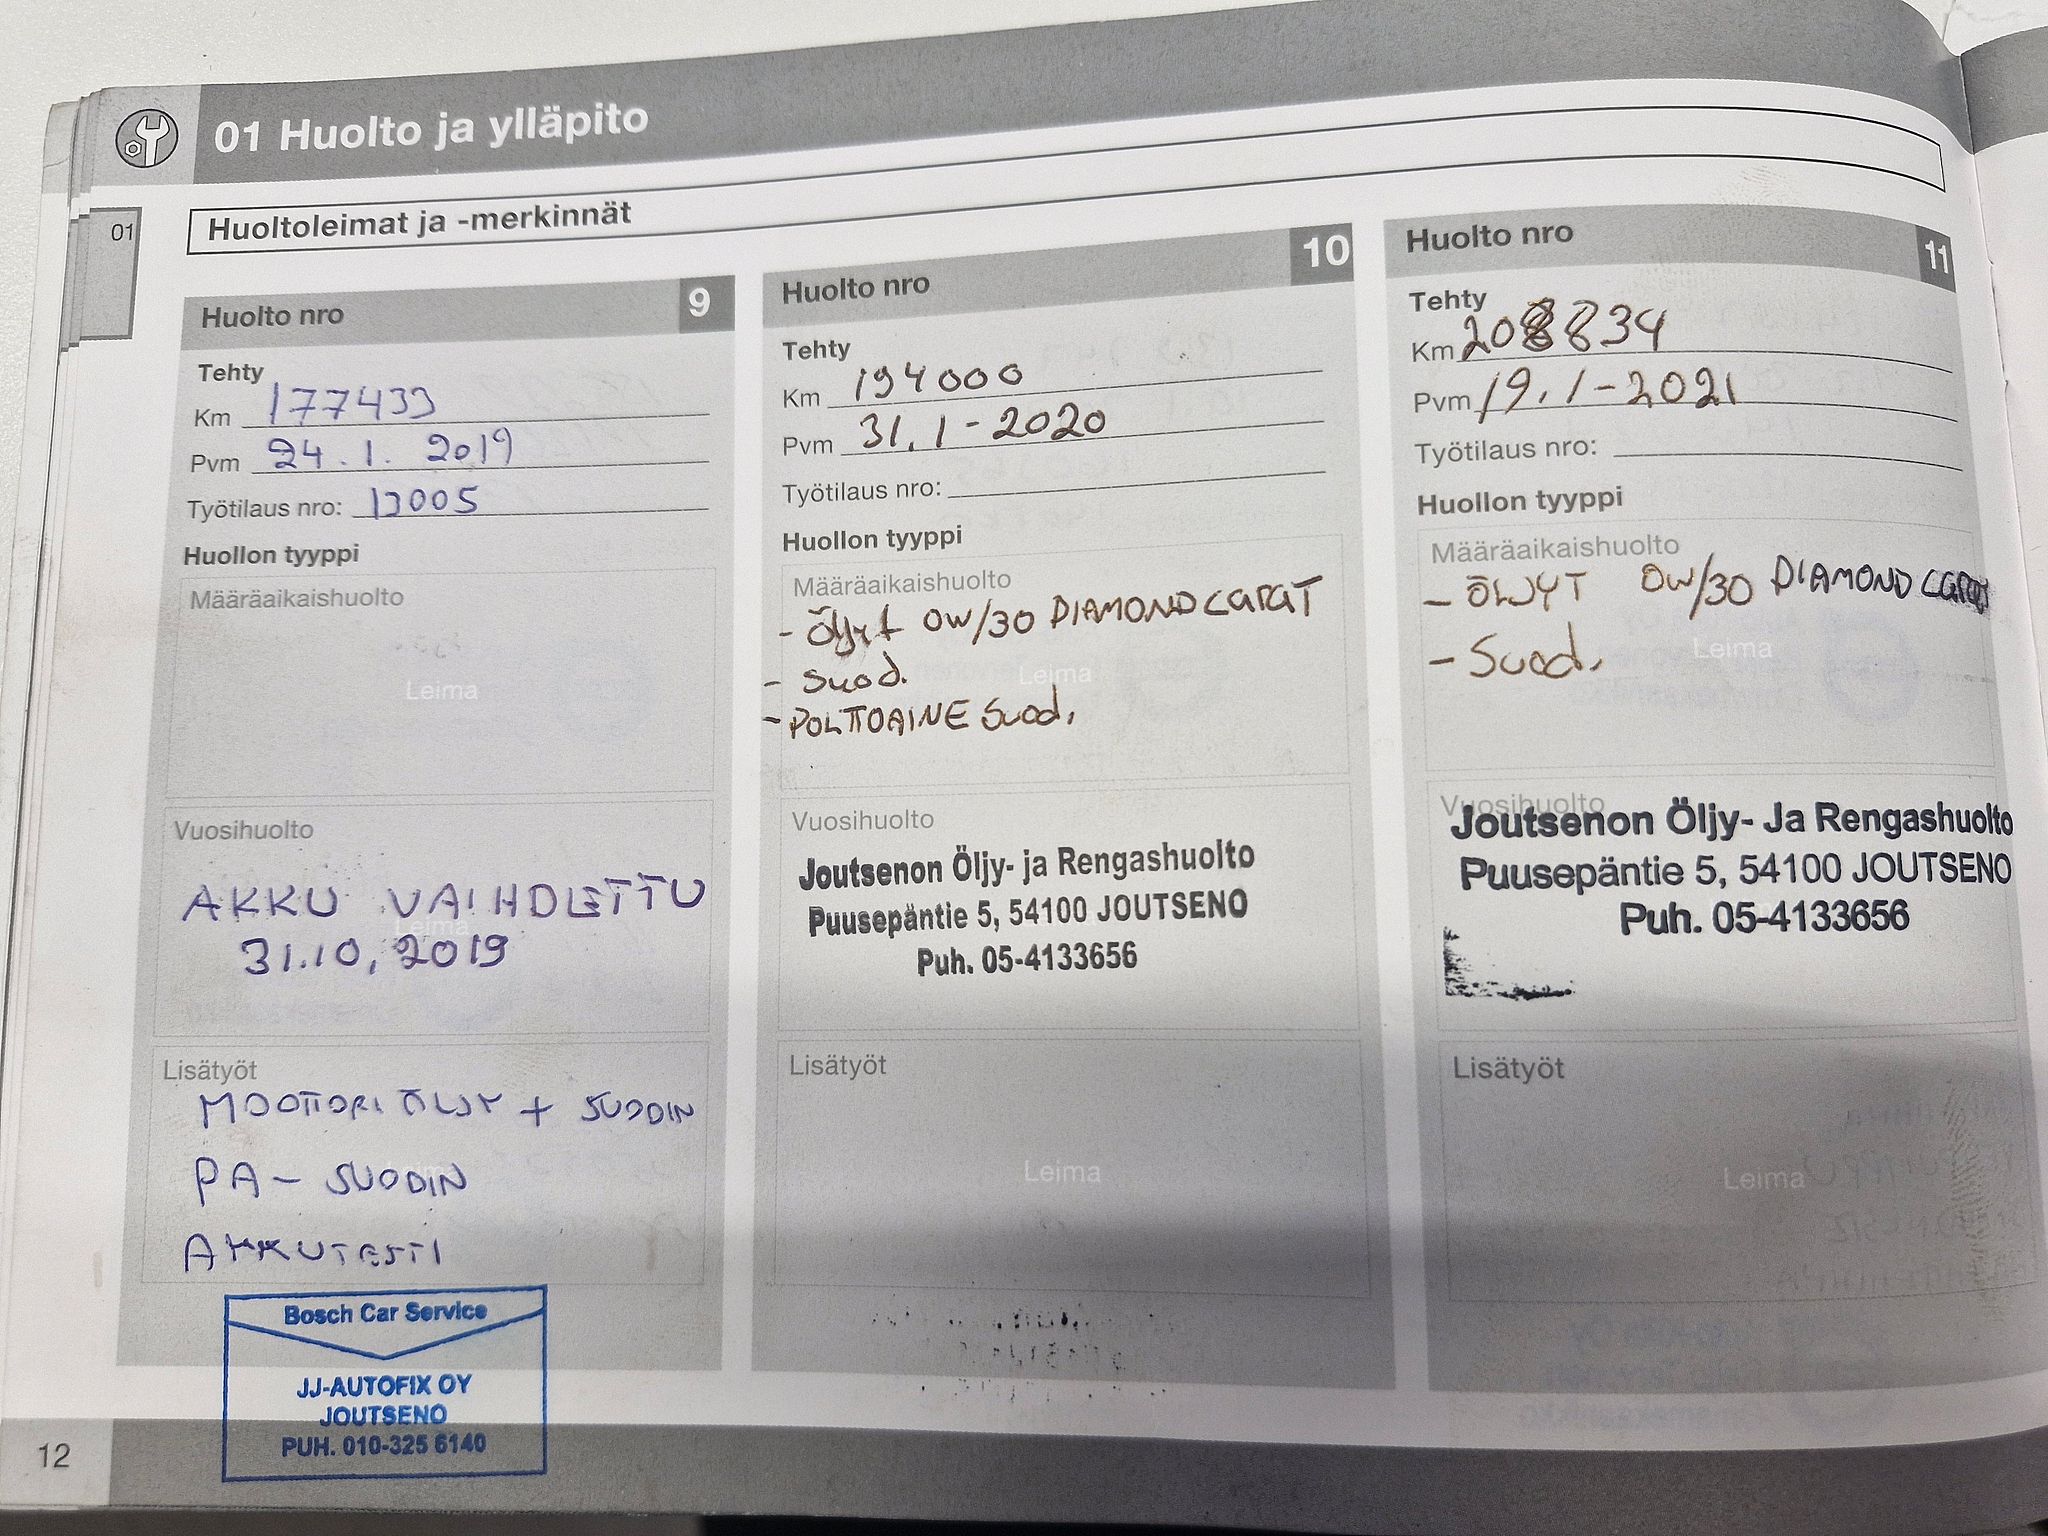 01 Huolto ja ylläpito
01
Huoltoleimat ja -merkinnät
Huolto nro 9
Tehty
Km 177433
Pvm 24.1. 2019
Työtilaus nro: 13005
Huollon tyyppi
Määräaikaishuolto
Leima
Vuosihuolto
AKKU VAIHDETTU
Leima
31.10,2019
Lisätyöt
MOOTTORIÖLJY + SUODIN
PA- SUODIN
AKKUTESTI
Bosch Car Service
JJ-AUTOFIX OY
JOUTSENO
PUH. 010-325 6140
Huolto nro 10
Tehty
Km 194000
Pvm 31.1-2020
Työtilaus nro:
Huollon tyyppi
Määräaikaishuolto
- Öljyt 0W/30 DIAMOND CARAT
- Suod.
Leima
- POLTTOAINE Suod.
Vuosihuolto
Joutsenon Öljy- ja Rengashuolto
Puusepäntie 5, 54100 JOUTSENO
Puh. 05-4133656
Lisätyöt
Leima
Huolto nro 11
Tehty
Km 208834
Pvm 19.1-2021
Työtilaus nro:
Huollon tyyppi
Määräaikaishuolto
- ÖLJYT 0W/30 DIAMOND CARAT
- Suod.
Leima
Vuosihuolto
Joutsenon Öljy- Ja Rengashuolto
Puusepäntie 5, 54100 JOUTSENO
Puh. 05-4133656
Lisätyöt
Leima
12